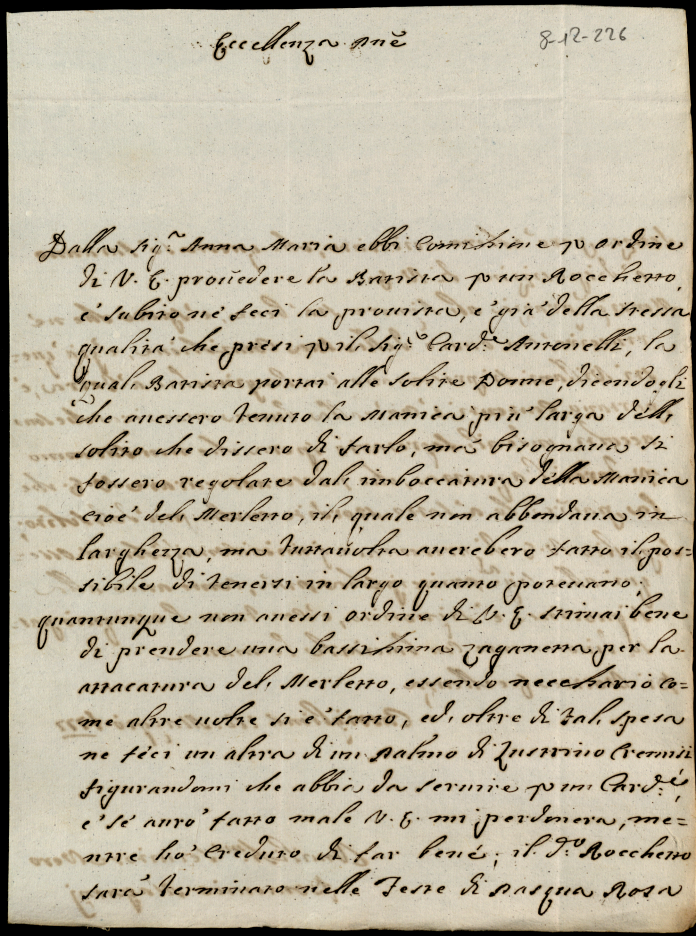 Eccellenza
8-12-226
Dalla Sig.ra Anna Maria ebbi Comissione p ordine
di V. E. prouedere la Batista p un Rocchetto,
e' subito né feci la prouista, e' già della stessa
qualità che presi p il Sig.r Card.e Antonelli, la
qual Batista portai alle solite Donne, dicendogli
che auessero tenuto la Manica più larga dell
solito che dissero di farlo, mà bisognaua si
fossero regolare dal imboccatura della Manica
cioé del Merletto, il quale non abbondaua in
larghezza, ma tuttauolta auerebero fatto il pos=
sibile di tenersi in largo quanto poteuano;
quantunque non auessi ordine di V. E. stimai bene
di prendere una bassissima zaganetta, per la
attacatura del Merletto, essendo necessario co=
me altre uolte si é fatto, ed oltre di tal spesa
ne féci un altra di un palmo di Lustrino Cremisi
figurandomi che abbia da seruire p un Card.e,
e' sé aurò fatto male V. E. mi perdonera, me=
ntre hò Creduto di far bené; il d.o Rocchetto
sarà terminato nelle Feste di Pasqua Rosa